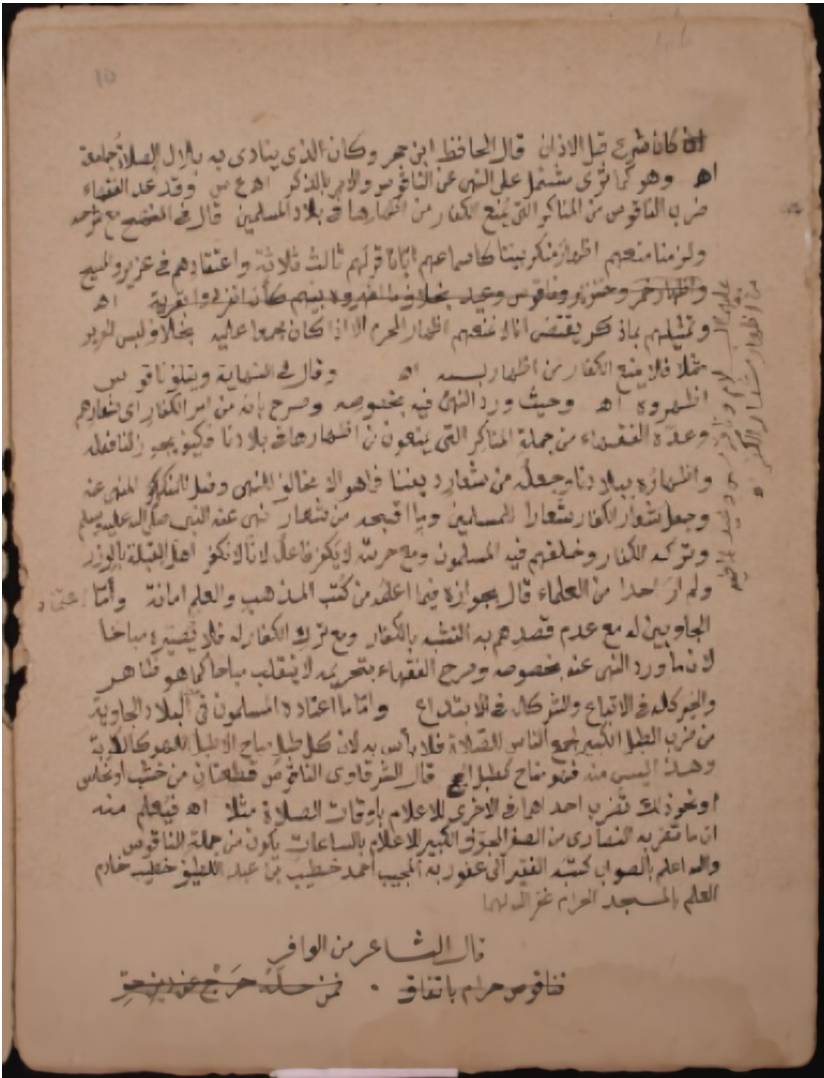 كان شرع قبل الاذان قال الحافظ ابن حجر وكان الذي ينادى به بلال الصلاة جامعة
اه وهو كما ترى مشتمل على النهى عن الناقوس والامر بالذكر اه ع ص وقد عد الفقهاء
ضرب الناقوس من المناكر التى يمنع الكفار من اظهارها فى بلاد المسلمين قال فى مع شرحه
ولزمنا منعهم اظهار منكر بيننا كاسماعهم ايانا قولهم ثالث ثلاثة واعتقادهم فى عزير والمسيح
واظهار خمر وخنزير وناقوس وعيد بخلاف ما اظهروه بينهم كأن انفردوا بقرية اه
وتمثيلهم بماذكر يقتضى انا لا نمنعهم اظهار المحرم الا اذا كان مجمعا عليه بخلاف لبس
مثلا فلا يمنع الكفار من اظهار لبسه اه وقال فى النهاية ويتلف ناقوس
اظهروه اه وحيث ورد النهى فيه بخصوصه وصرح بانه من امر الكفار اى شعارهم
وعده الفقهاء من جملة المناكر التى يمنعون من اظهارها فى بلادنا فكيف يجوز لنا فعله
واظهاره ببلادنا وجعله من شعار ديننا فما هو الا مخالف للنهى وفعل المنكر المنهى عنه
وجعل شعار الكفار شعارا للمسلمين وما اقبحه من شعار نهى عنه النبى صلى الله عليه وسلم
وتركه الكفار وخلفهم فيه المسلمون ومع حرمته لا يكفر فاعله لانا لا نكفر اهل القبلة بالوزر
ولم ار احدا من العلماء قال بجوازه فيما اعلم من كتب المذهب والعلم امانة وأما اعتياد
الجاويين له مع عدم قصدهم به التشبه بالكفار ومع ترك الكفار له فلا يصيره مباحا
لان ما ورد النهى عنه بخصوصه وصرح الفقهاء بتحريمه لا ينقلب مباحا كما هو ظاهر
والخير كله فى الاتباع والشر كله فى الابتداع وأما ما اعتاده المسلمون فى البلاد الجاوية
من ضرب الطبل الكبير لجمع الناس للصلاة فلا بأس به لان كل طبل مباح الا طبل اللهو كالكوبة
وهذا ليس منه فهو مباح كطبل الحج قال الشرقاوى الناقوس قطعتان من خشب او نحاس
او نحو ذلك تضرب احداهما فى الأخرى للاعلام باوقات الصلاة مثلا اه فيعلم منه
ان ما تضربه النصارى من الصفر المجوف الكبير للاعلام بالساعات يكون من جملة الناقوس
والله اعلم بالصواب كتبه الفقير الى عفو ربه المجيب احمد خطيب بن عبد اللطيف خطيب خادم
العلم بالمسجد الحرام غفر الله لهما
قال الشاعر من الوافر
فناقوس حرام باتفاق . فمن
من اظهار شعار الكفر اه